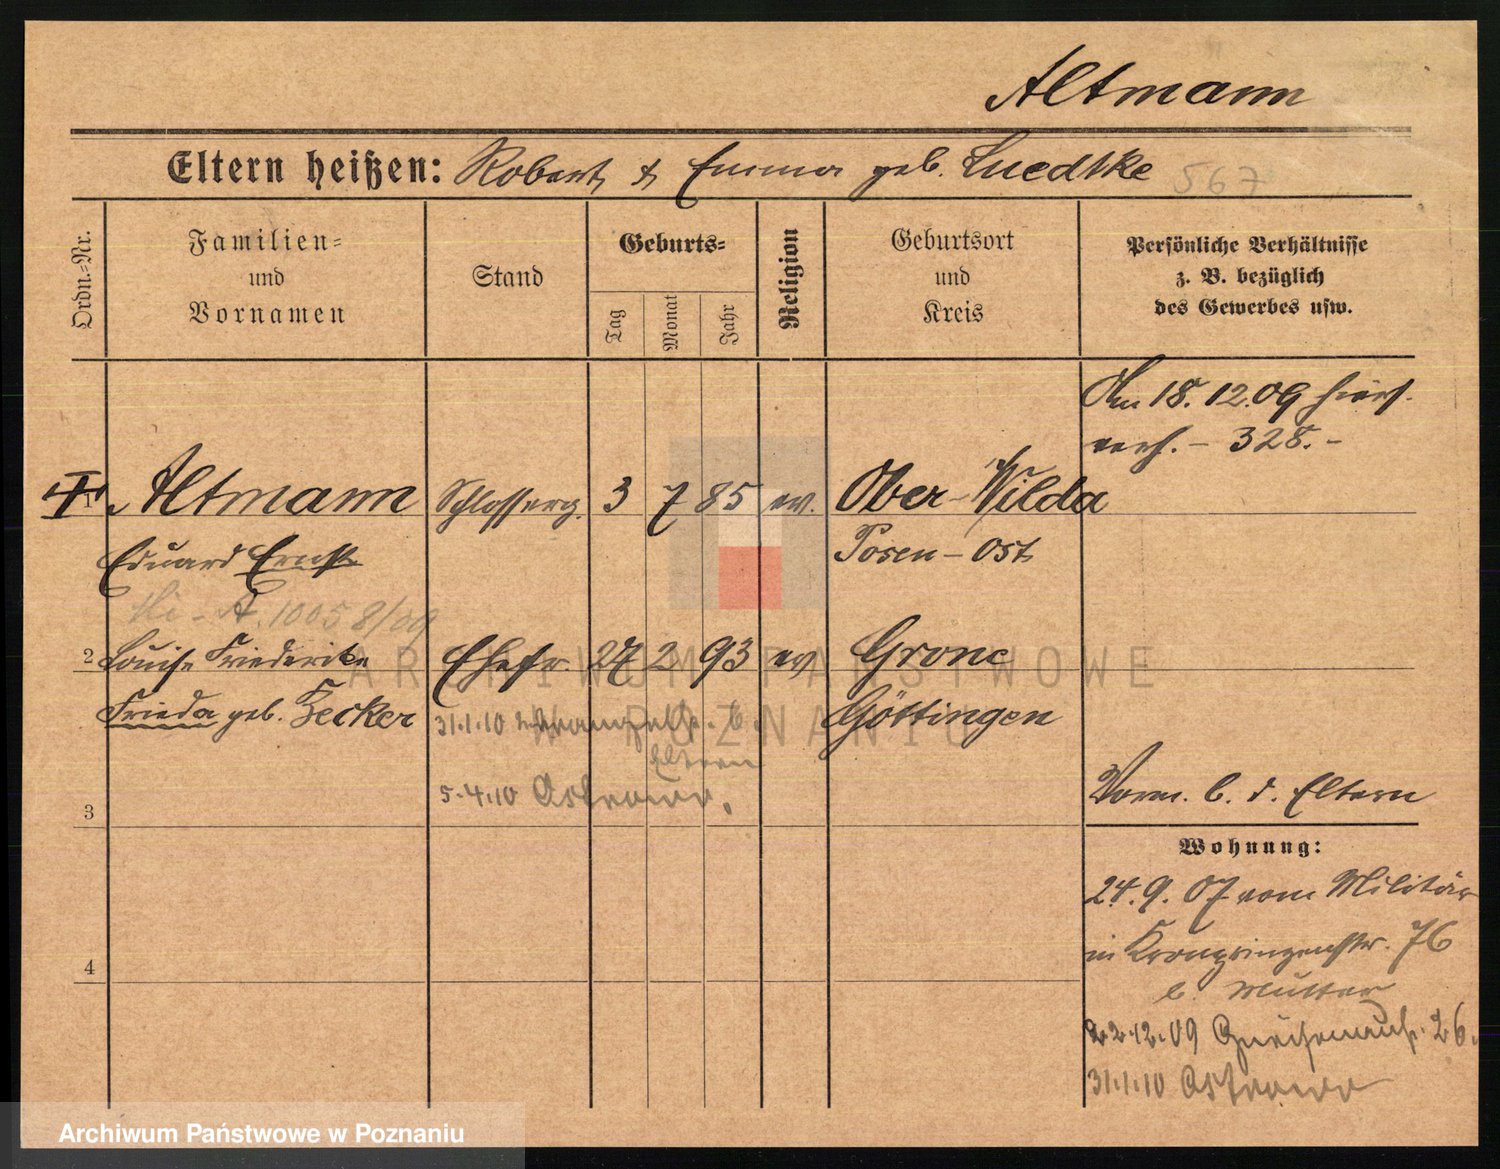 Altmann
Eltern heißen: Robert & Emma geb. Luedtke 567
Ordn.=Nr.
Familien=
und
Vornamen
Stand
Geburts=
Tag
Monat
Jahr
Religion
Geburtsort
und
Kreis
Persönliche Verhältnisse
z. B. bezüglich
des Gewerbes usw.
Am 18.12.09 hier
verh. - 328.-
1 Altmann Schlosserg. 3 7 85 ev. Ober-Wilda
Eduard Ernst Posen-Ost
A. 10058/09
2 Louise Friederike Ehefr. 27 2 93 ev Grone
Frieda geb. Zecker Göttingen
31.1.10 b.
Eltern
5.4.10 Ostrowo.
3
Vorm. b. d. Eltern
Wohnung:
24.9.07 vom Militär
in Kronprinzenstr. 76
b. Mutter
4
22.12.09 Gneisenaustr. 26.
31.1.10 Ostrowo
ARCHIWUM PAŃSTWOWE
W POZNANIU
Archiwum Państwowe w Poznaniu